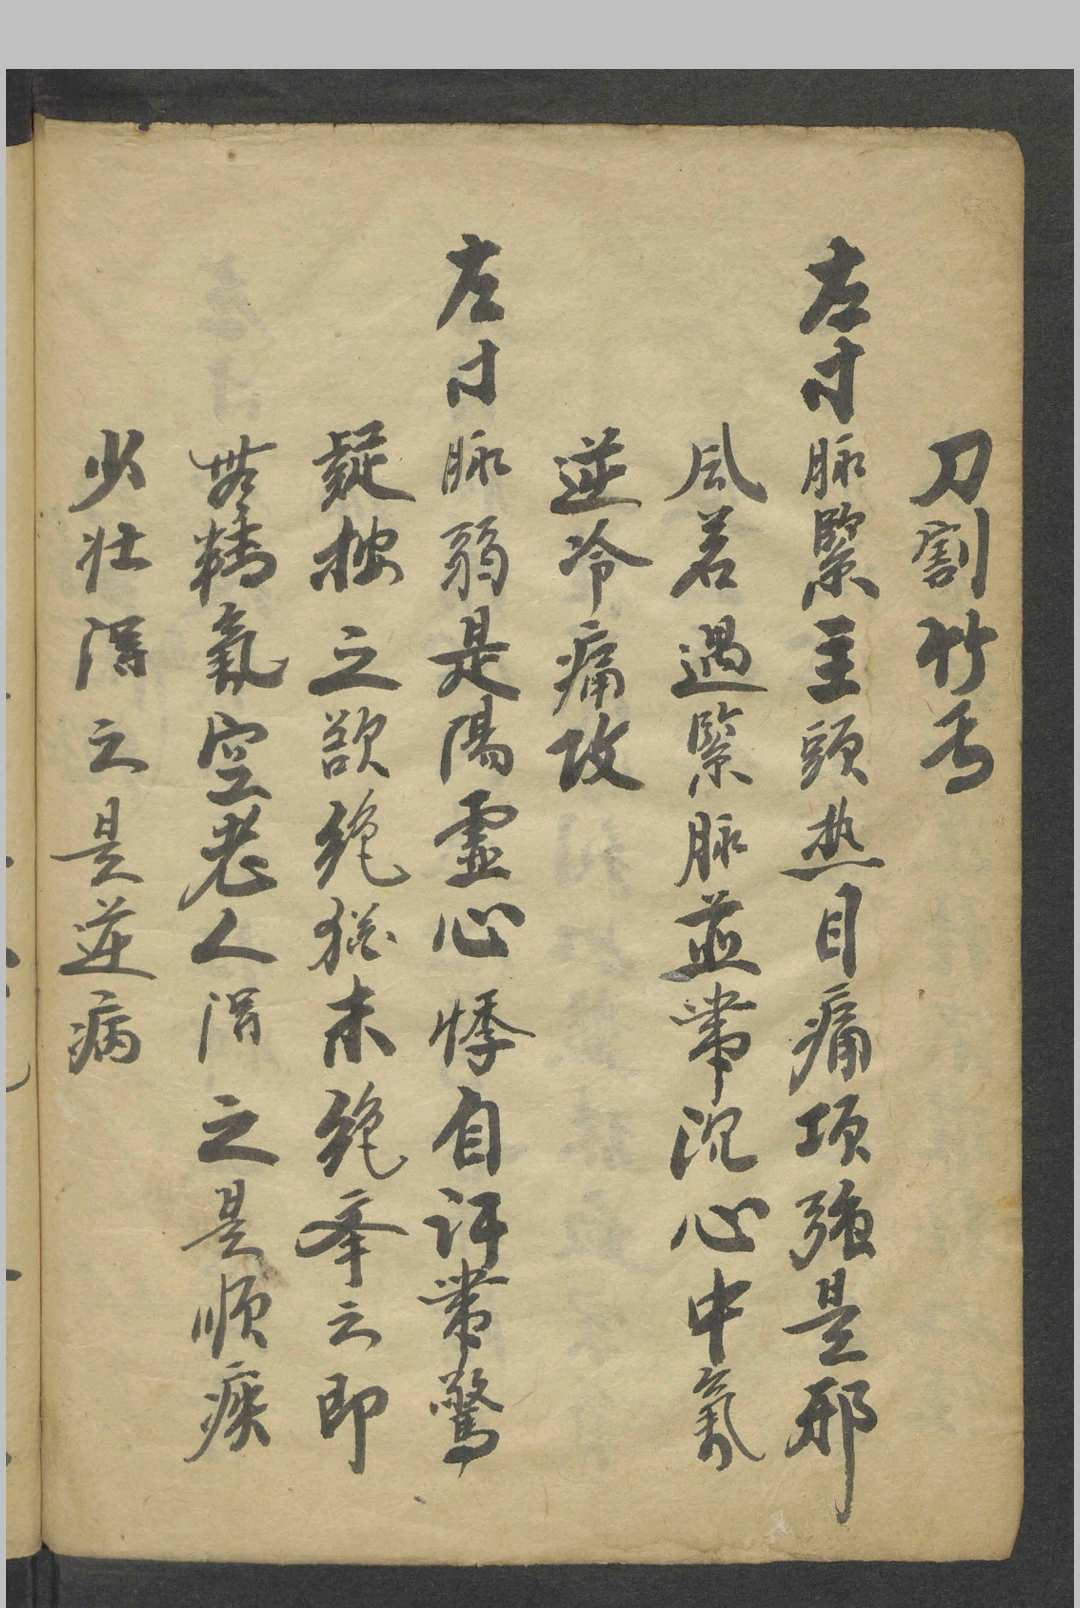 刀割竹焉
左寸脉緊主頭热目痛項強是邪
風若遇緊脉並帶沉心中氣
逆冷痛攻
左寸脉弱是陽虛心悸自汗帶驚
疑按之欲絶猶未絶舉之即
無精氣空老人得之是順疾
少壮得之是逆病